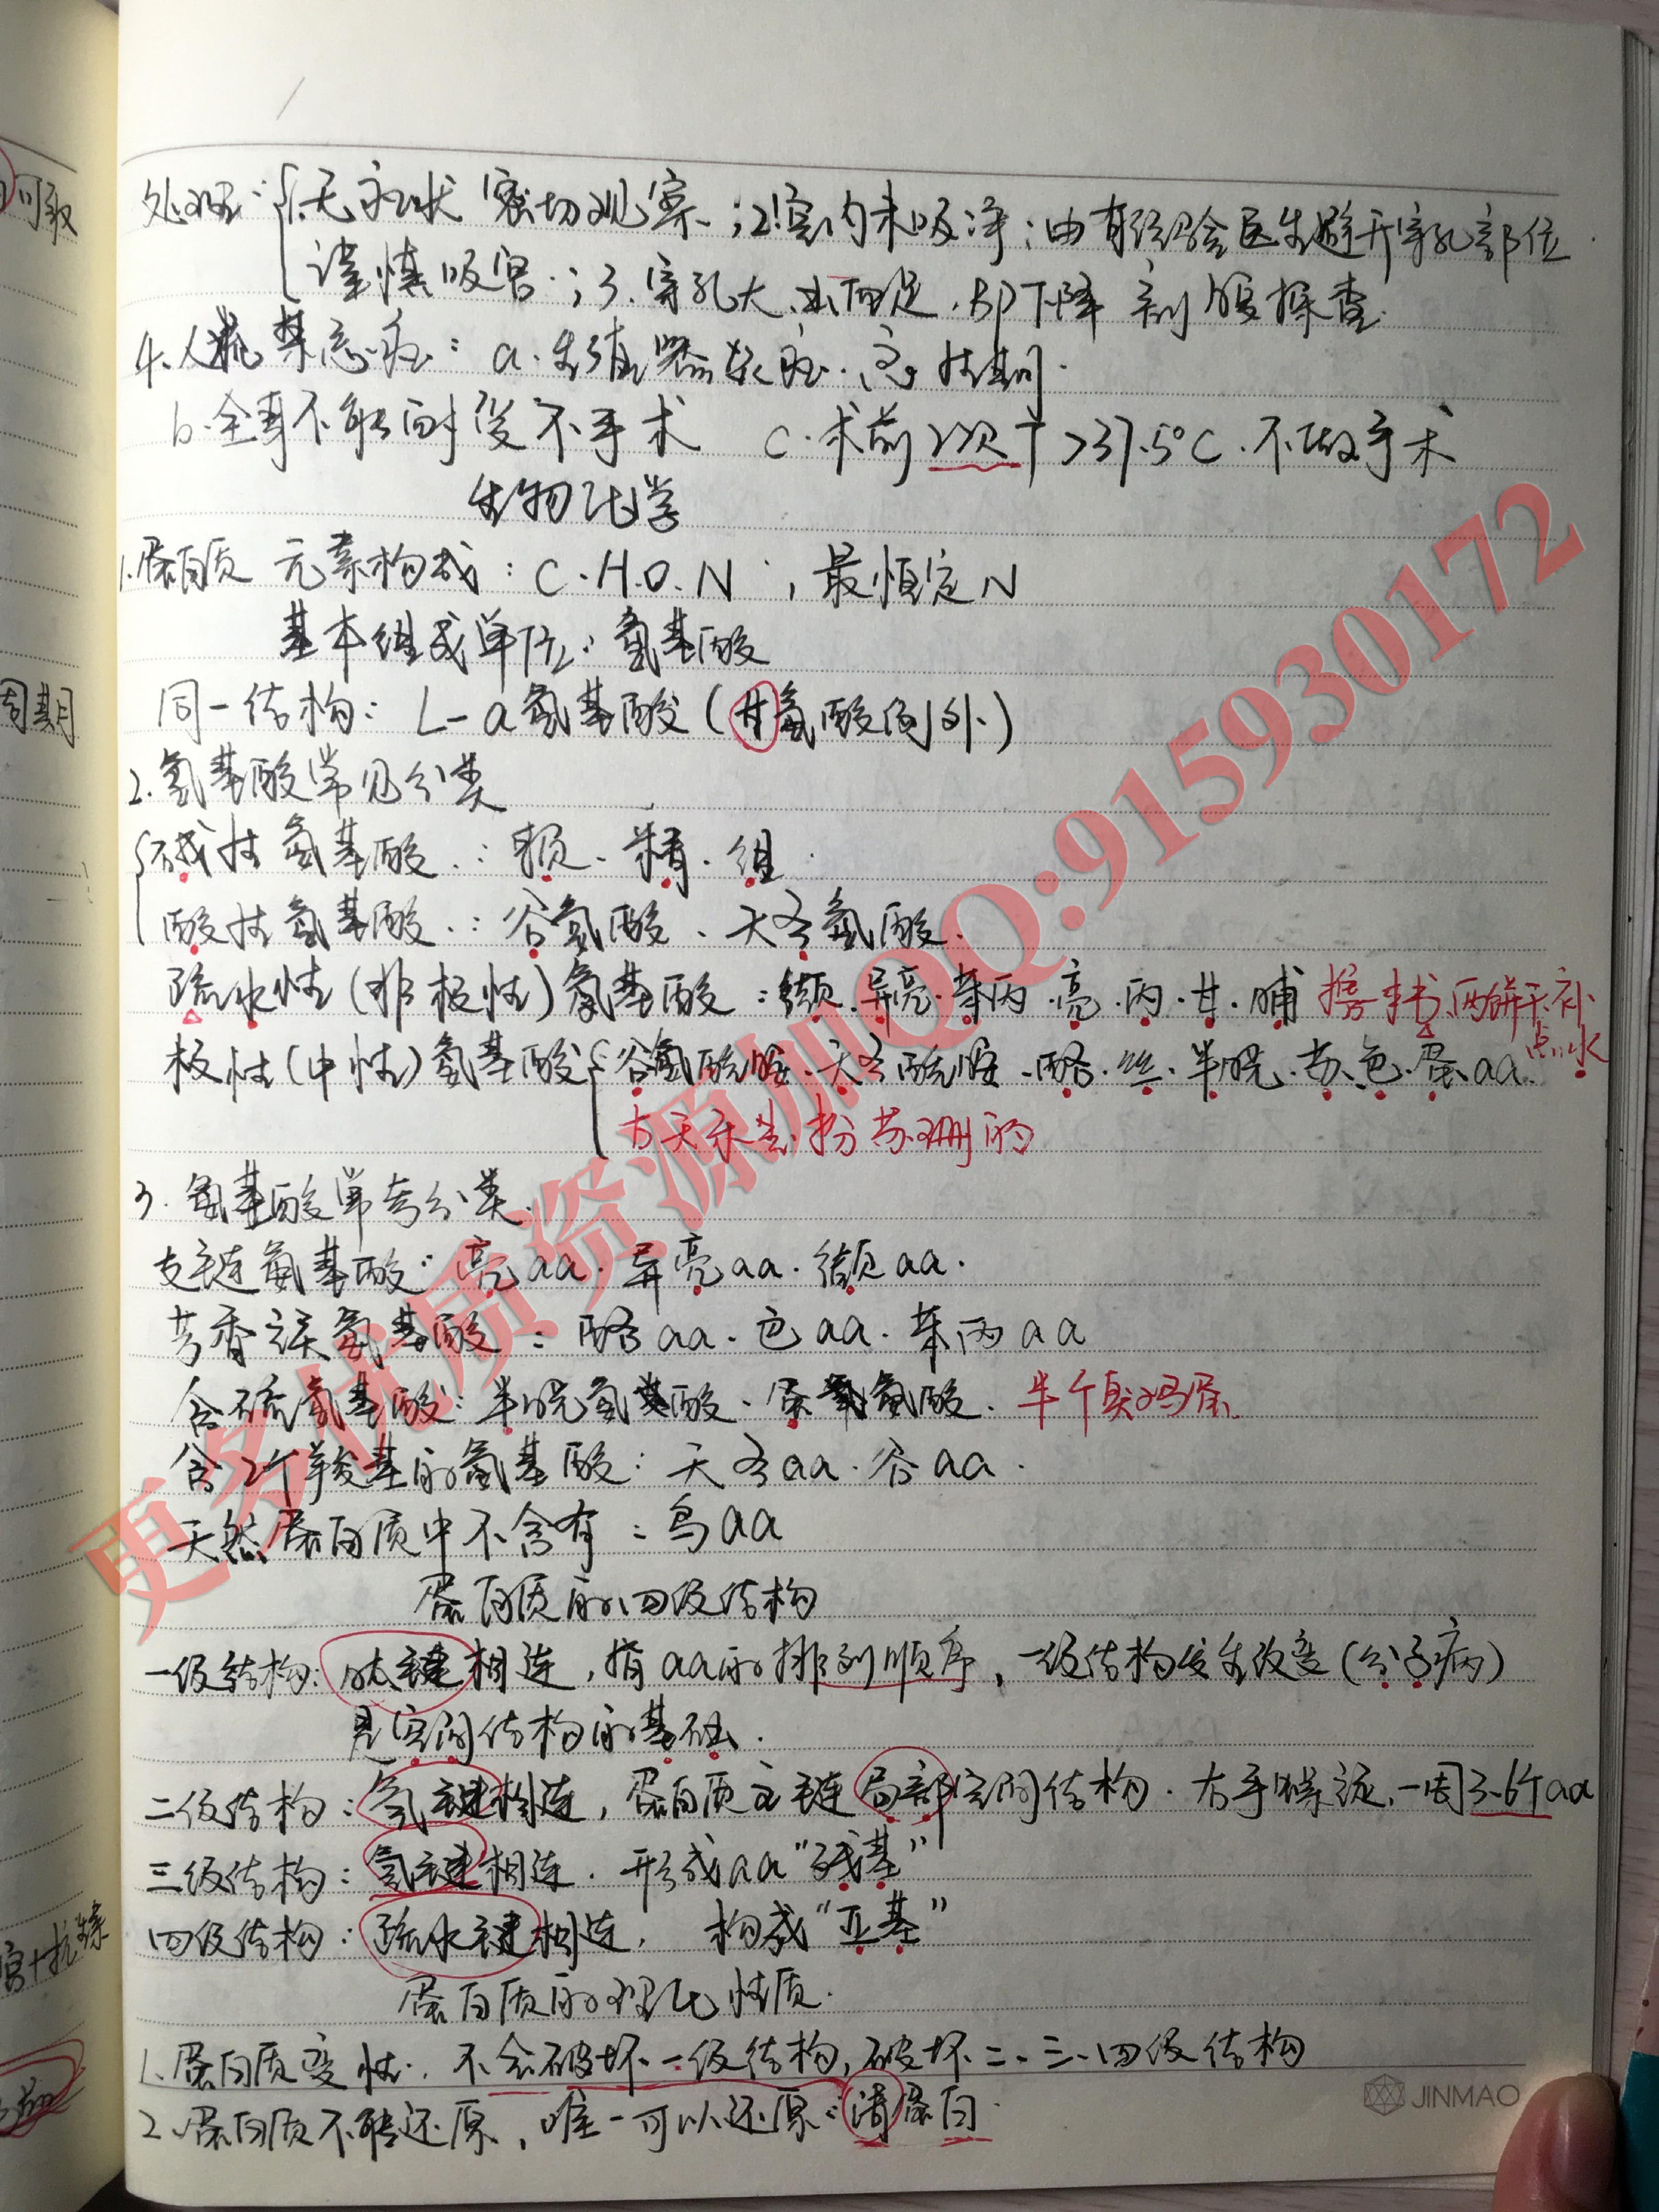 处理：1.无症状 密切观察；2.宫内未吸净：由有经验医生避开穿孔部位
谨慎吸宫；3.穿孔大、出血多、BP下降 剖腹探查
4.人流禁忌症：a.生殖器炎症、急性期.
b.全身不能耐受不手术 c.术前2次T>37.5℃.不做手术
生物化学
1.蛋白质 元素构成：C.H.O.N，最恒定N
基本组成单位：氨基酸
同一结构：L-α氨基酸（甘氨酸例外）
2.氨基酸常见分类
碱性氨基酸：赖、精、组
酸性氨基酸：谷氨酸、天冬氨酸.
疏水性（非极性）氨基酸：缬.异亮.苯丙.亮.丙.甘.脯 携书两饼干补点水
极性（中性）氨基酸 谷氨酰胺、天冬酰胺、酪.丝.半胱.苏.色.蛋aa.
3.氨基酸常考分类.
支链氨基酸：亮aa.异亮aa.缬aa.
芳香族氨基酸：酪aa.色aa.苯丙aa
含硫氨基酸：半胱氨基酸、蛋氨酸. 半个臭鸡蛋.
含2个羧基的氨基酸：天冬aa.谷aa.
天然蛋白质中不含有：鸟aa
蛋白质的四级结构
一级结构：肽键相连，指aa的排列顺序，一级结构发生改变（分子病）
是空间结构的基础.
二级结构：氢键相连，蛋白质主链局部空间结构.右手螺旋，一周3.6个aa
三级结构：氢键相连.形成aa“残基”
四级结构：疏水键相连， 构成“亚基”
蛋白质的理化性质.
1.蛋白质变性.不会破坏一级结构，破坏二、三、四级结构
2.蛋白质不能还原，唯一可以还原：清蛋白.
JINMAO
更多优质资源加QQ:915930172
可敢
周期
宫+抗